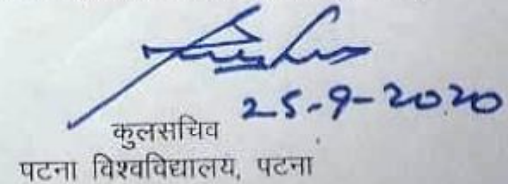 25-9-2020
कुलसचिव
पटना विश्वविद्यालय, पटना